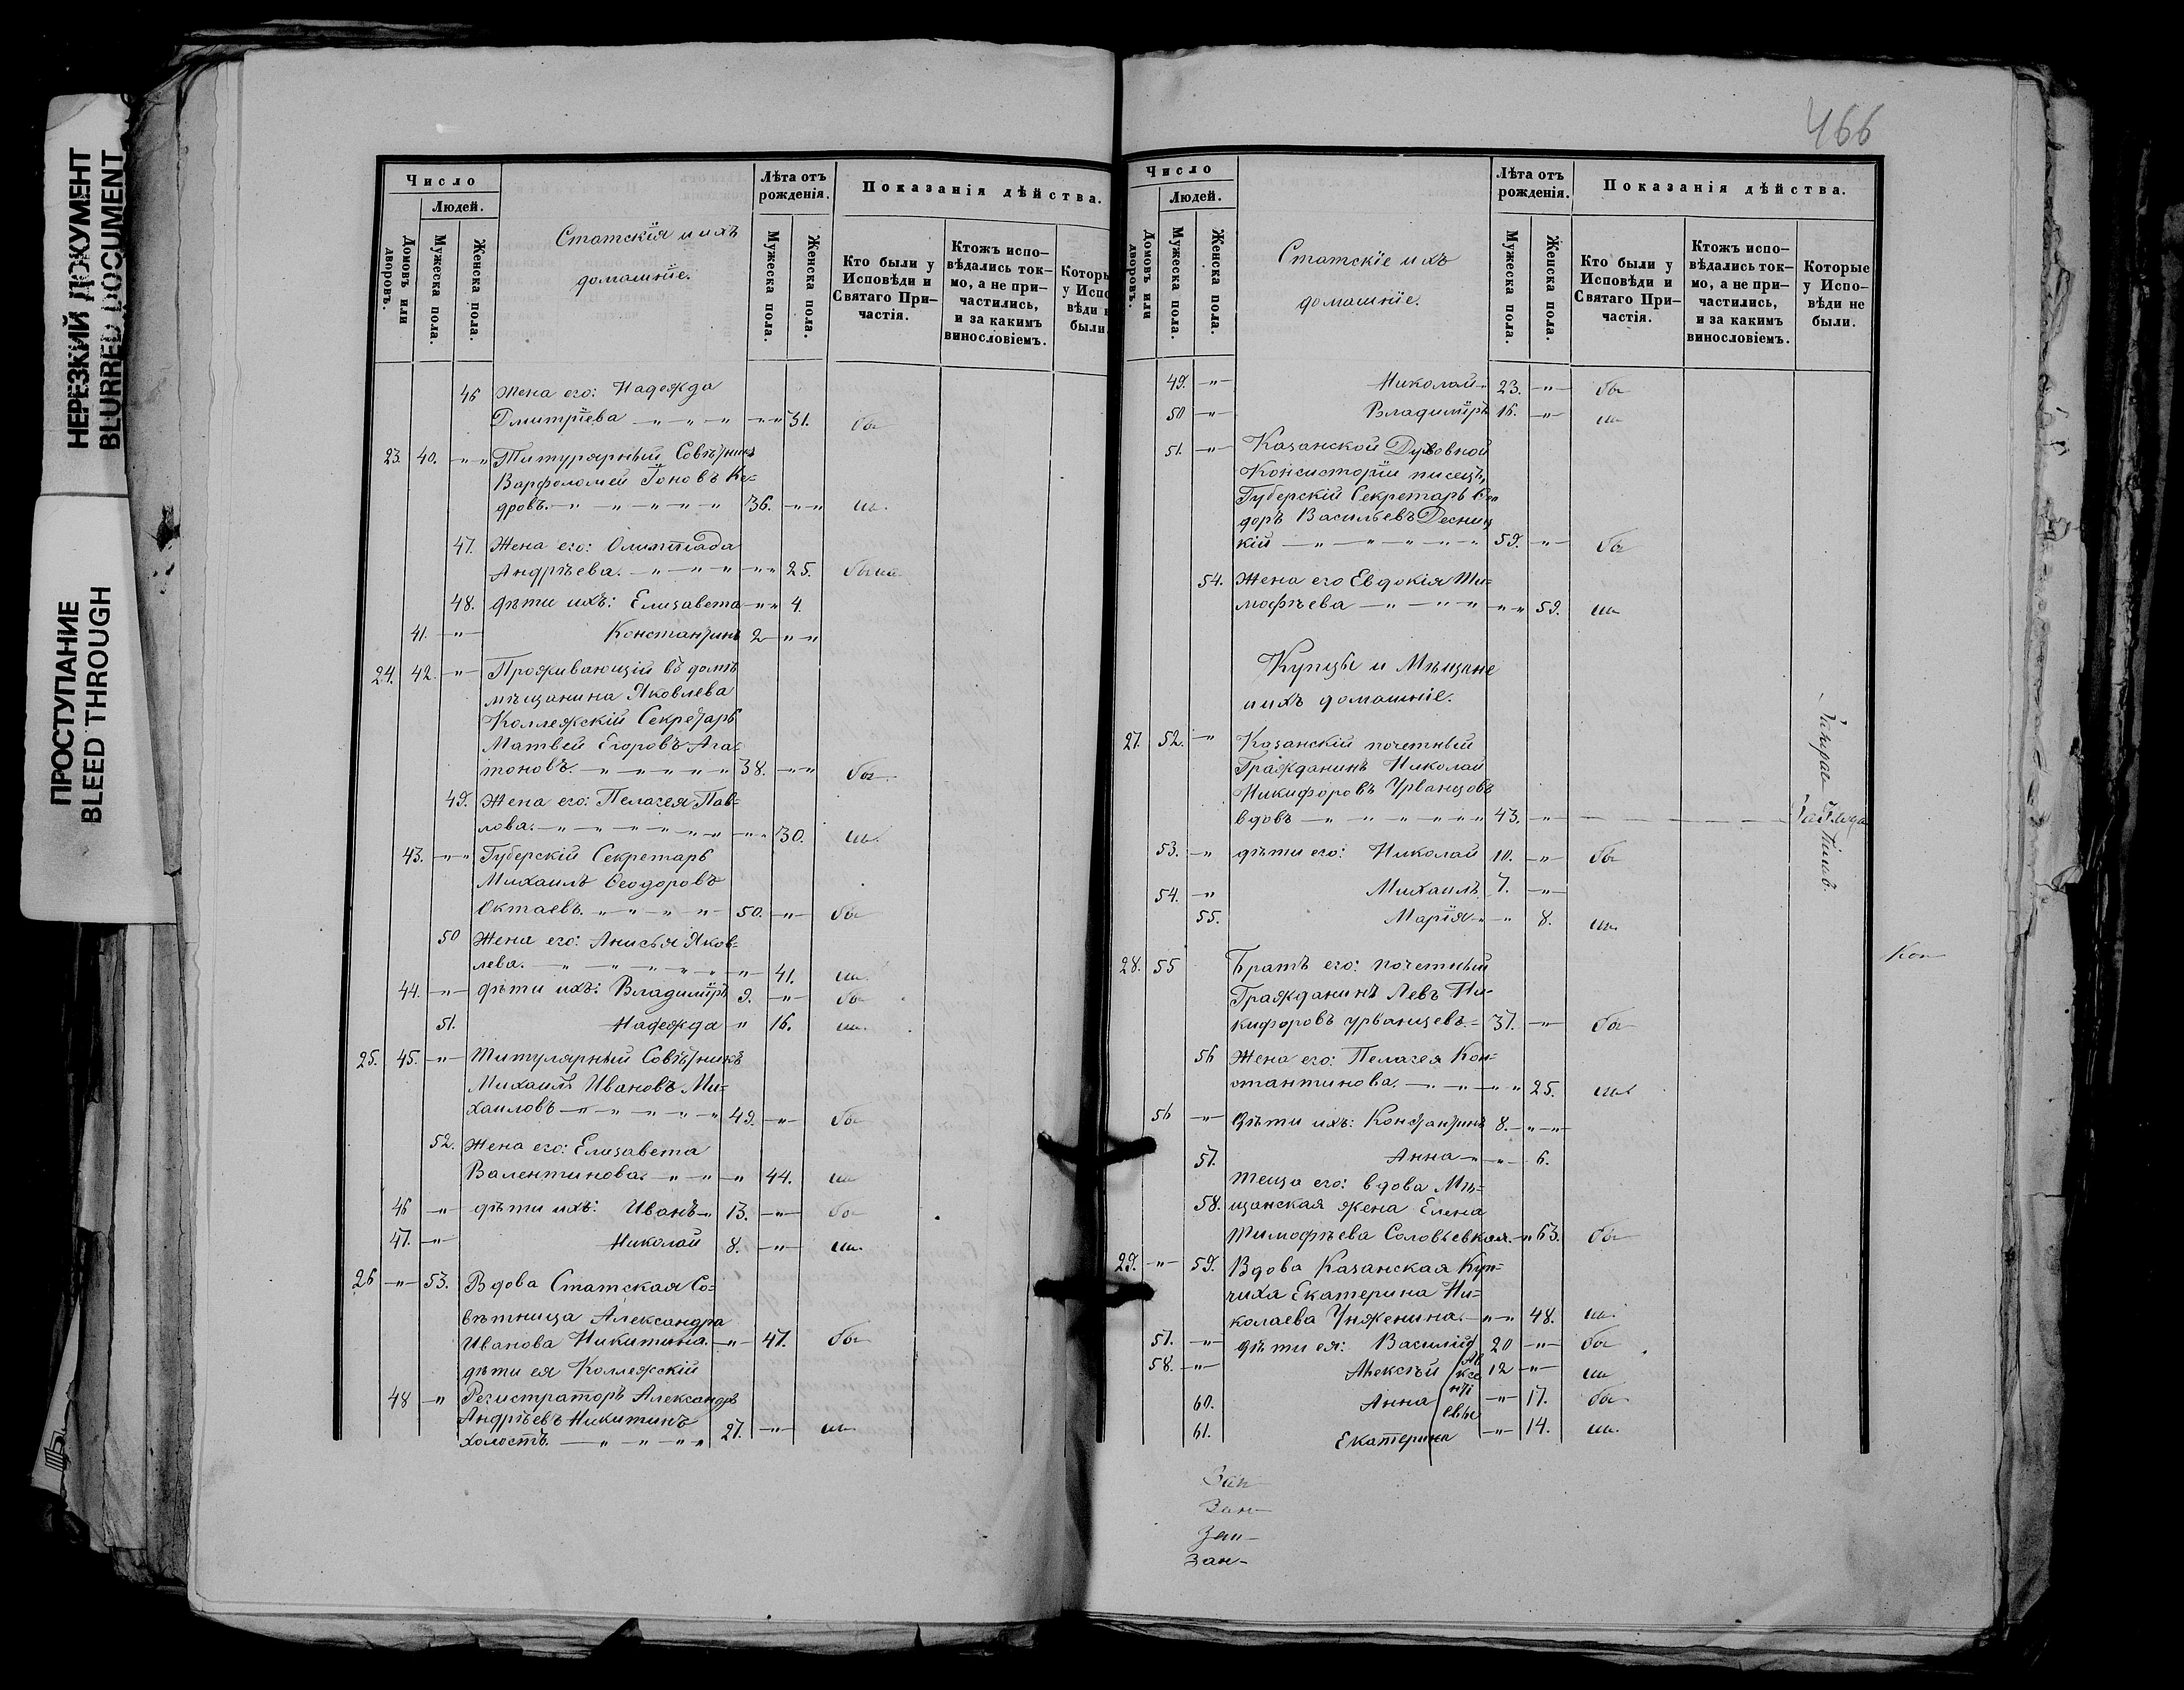 НЕРЕЗКИЙ ДОКУМЕНТ
BLURRED DOCUMENT
ПРОСТУПАНИЕ
BLEED THROUGH
Число
Людей.
Домовъ или дворовъ.
Мужеска пола.
Женска пола.
Статскія и ихъ
домашніе.
Лѣта отъ рожденія.
Мужеска пола.
Женска пола.
Показанія дѣйства.
Кто были у Исповѣди и Святаго Причастія.
Ктожъ исповѣдались токмо, а не причастились, и за какимъ винословіемъ.
Которы
у Испо
вѣди н
были.
46 Жена его: Надежда
Дмитріева 31. бы
23. 40. Титулярный Совѣтникъ
Варфоломей Іоновъ Ке-
дровъ. 36. ли.
47. Жена его: Олимпіада
Андрѣева. 25. были
48. дѣти ихъ: Елизавета 4.
41. Константинъ 2
24. 42. Проживающій въ домѣ
мѣщанина Яковлева
Коллежскій Секретарь
Матвей Егоровъ Ага-
тоновъ. 38. бы
49. Жена его: Пелагея Пав-
лова. 30. ли.
43. Губерскій Секретарь
Михаилъ Ѳеодоровъ
Октаевъ. 50. бы
50 Жена его: Анисья Яков-
лева. 41. ли.
44. дѣти ихъ: Владиміръ 9. бы
51. Надежда 16. ли.
25. 45. Титулярный Совѣтникъ
Михаилъ Ивановъ Ми-
хаиловъ 49. бы
52. Жена его: Елизавета
Валентинова. 44. ли
46 дѣти ихъ: Иванъ 13. бы
47. Николай 8. ли.
26 53. Вдова Статская Со-
вѣтница Александра
Иванова Никитина. 47. бы
дѣти ея Коллежскій
48 Регистраторъ Александръ
Андрѣевъ Никитинъ
холостъ. 27. ли
466
Число
Людей.
Домовъ или дворовъ.
Мужеска пола.
Женска пола.
Статскіе ихъ
домашніе.
Лѣта отъ рожденія.
Мужеска пола.
Женска пола.
Показанія дѣйства.
Кто были у Исповѣди и Святаго Причастія.
Ктожъ исповѣдались токмо, а не причастились, и за какимъ винословіемъ.
Которые у Исповѣди не были.
49. Николай 23. бы
50 Владиміръ 16. ли
51. Казанской Духовной
Консисторіи писецъ,
Губерскій Секретарь Ѳео
доръ Васильевъ Десниц
кій 59. бы
54. Жена его Евдокія Ти-
мофѣева 59. ли
Купцы и Мѣщане
и ихъ домашніе.
27. 52. Казанскій почетный
Гражданинъ Николай
Никифоровъ Урванцовъ
вдовъ 43.
53. дѣти его: Николай 10. бы
54. Михаилъ 7.
55. Марія 8. ли
28. 55 Братъ его: почетный
Гражданинъ Левъ Ни-
кифоровъ урванцевъ. 37. бы
56 Жена его: Пелагея Кон-
стантинова. 25. ли
56 Дѣти ихъ: Константинъ 8.
57. Анна 6.
теща его: вдова Мѣ-
58. щанская жена Елена
Тимофѣева Соловьевкая. 63. бы
29. 59. Вдова Казанская Куп-
чиха Екатерина Ни-
колаева Унженина. 48. ли
57. дѣти ея: Василій 20 бы
58. Алексѣй 12 ли
60. Анна 17. бы
61. Екатерина 14. ли.
Зан
Зан
Зан
Зан